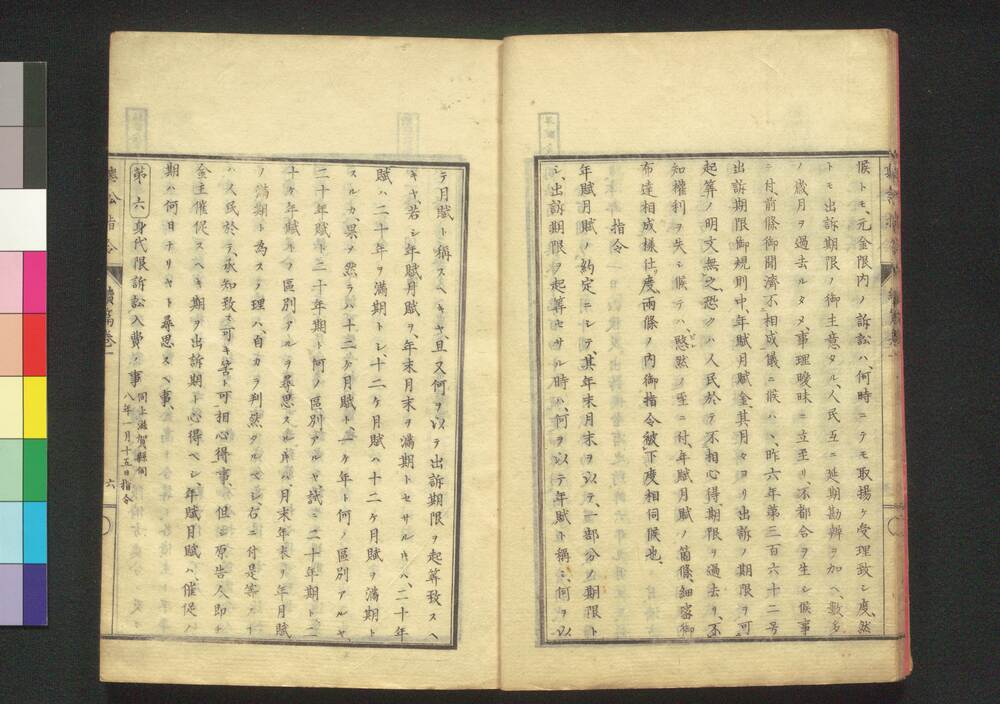 候トモ、元金限内ノ訴訟ハ、何時ニテモ取揚ケ受理致シ度、然
トモ出訴期限ノ御主意タル、人民互ニ延期勘辨ヲ加ヘ、數多
ノ歳月ヲ過去ルタメ、事理曖昧ニ立至リ、不都合ヲ生シ候事
ニ付、前條御聞濟不相成儀ニ候ハヽ、昨六年第三百六十二号
出訴期限御規則中、年賦月賦金其月々ヨリ出訴ノ期限ヲ可
起算ノ明文無之、恐クハ人民於テ不相心得、期限ヲ過去リ、不
知權利ヲ失シ候テハ、愍然ノ至ニ付、年賦月賦ノ箇條、細密御
布達相成様仕度、兩條ノ内御指令被下度相伺候也、
指令
年賦月賦ノ約定ニシテ、其年末月末ヲ以テ、一部分ノ期限ト
シ、出訴期限ヲ起算セサル時ハ、何ヲ以テ年賦ト稱シ、何ヲ以
テ月賦ト稱スヘキヤ、且又何ヲ以テ出訴期限ヲ起算致スヘ
キヤ、若シ年賦月賦ヲ、年末月末ヲ満期トセサルキハ、二十年
賦ハ二十年ヲ満期トシ、十二ケ月賦ハ十二ケ月賦ヲ満期ト
スルカ、果シテ然ラハ十二ケ月賦ト、一ケ年ト何ノ區別アルヤ、
二十年賦ト二十年期ト何ノ區別アルヤ、試ニ二十年期ト二
十ケ年賦トノ區別アルヲ尋思スルキハ、月末年末ヲ年月賦
ノ満期ト為スノ理ハ、自カラ判然タルヘシ、右ニ付是等ノ
ハ人民於テ、承知致ス可キ筈ト可相心得事、但シ原告人即チ
金主催促スヘキ期ヲ出訴期ト心得ヘシ、年賦月賦ハ、催促ノ
期ハ何日ナリヤト尋思スヘキ事、
第六 身代限訴訟入費ノ事 同上滋賀縣伺
八年一月十五日指令
訟指令
續篇卷一
六